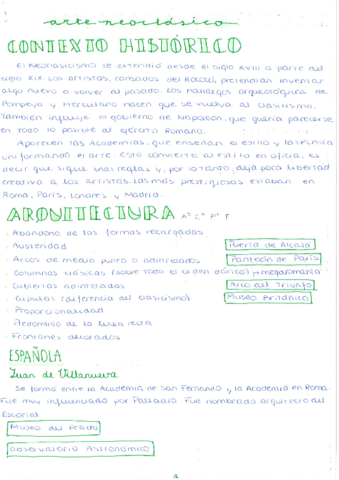 arte neoclásico
CONTEXTO HISTÓRICO
El Neoclasicismo se extendió desde el siglo XVIII a parte del
siglo XIX. Los artistas, cansados del Rococó, pretendían inventar
algo nuevo o volver al pasado. Los hallazgos arqueológicos de
Pompeya y Herculano hacen que se vuelva al clasicismo.
También influye el gobierno de Napoleón, que quería parecerse
en todo lo posible al ejército Romano.
Aparecen las Academias, que enseñan el estilo y la técnica
uniformando el arte. Esto convierte al estilo en oficial, es
decir que sigue unas reglas y, por lo tanto, deja poca libertad
creativa a los artistas. Las más prestigiosas estaban en
Roma, París, Londres y Madrid.
ARQUITECTURA
· Abandono de las formas recargadas
· Austeridad
Puerta de Alcalá
· Arcos de medio punto o adintelados
Panteón de París
· Columnas clásicas (sobre todo el orden dórico) y megalomanía
· Cubiertas adinteladas
Arco del Triunfo
· Cúpulas (diferencia del clasicismo)
Museo Británico
· Proporcionalidad
· Predominio de la línea recta
· Frontones decorados
ESPAÑOLA
Juan de Villanueva
Se formó entre la Academia de San Fernando y la Academia en Roma.
Fue muy influenciado por Palladio. Fue nombrado arquitecto del
Escorial
Museo del Prado
Observatorio Astronómico